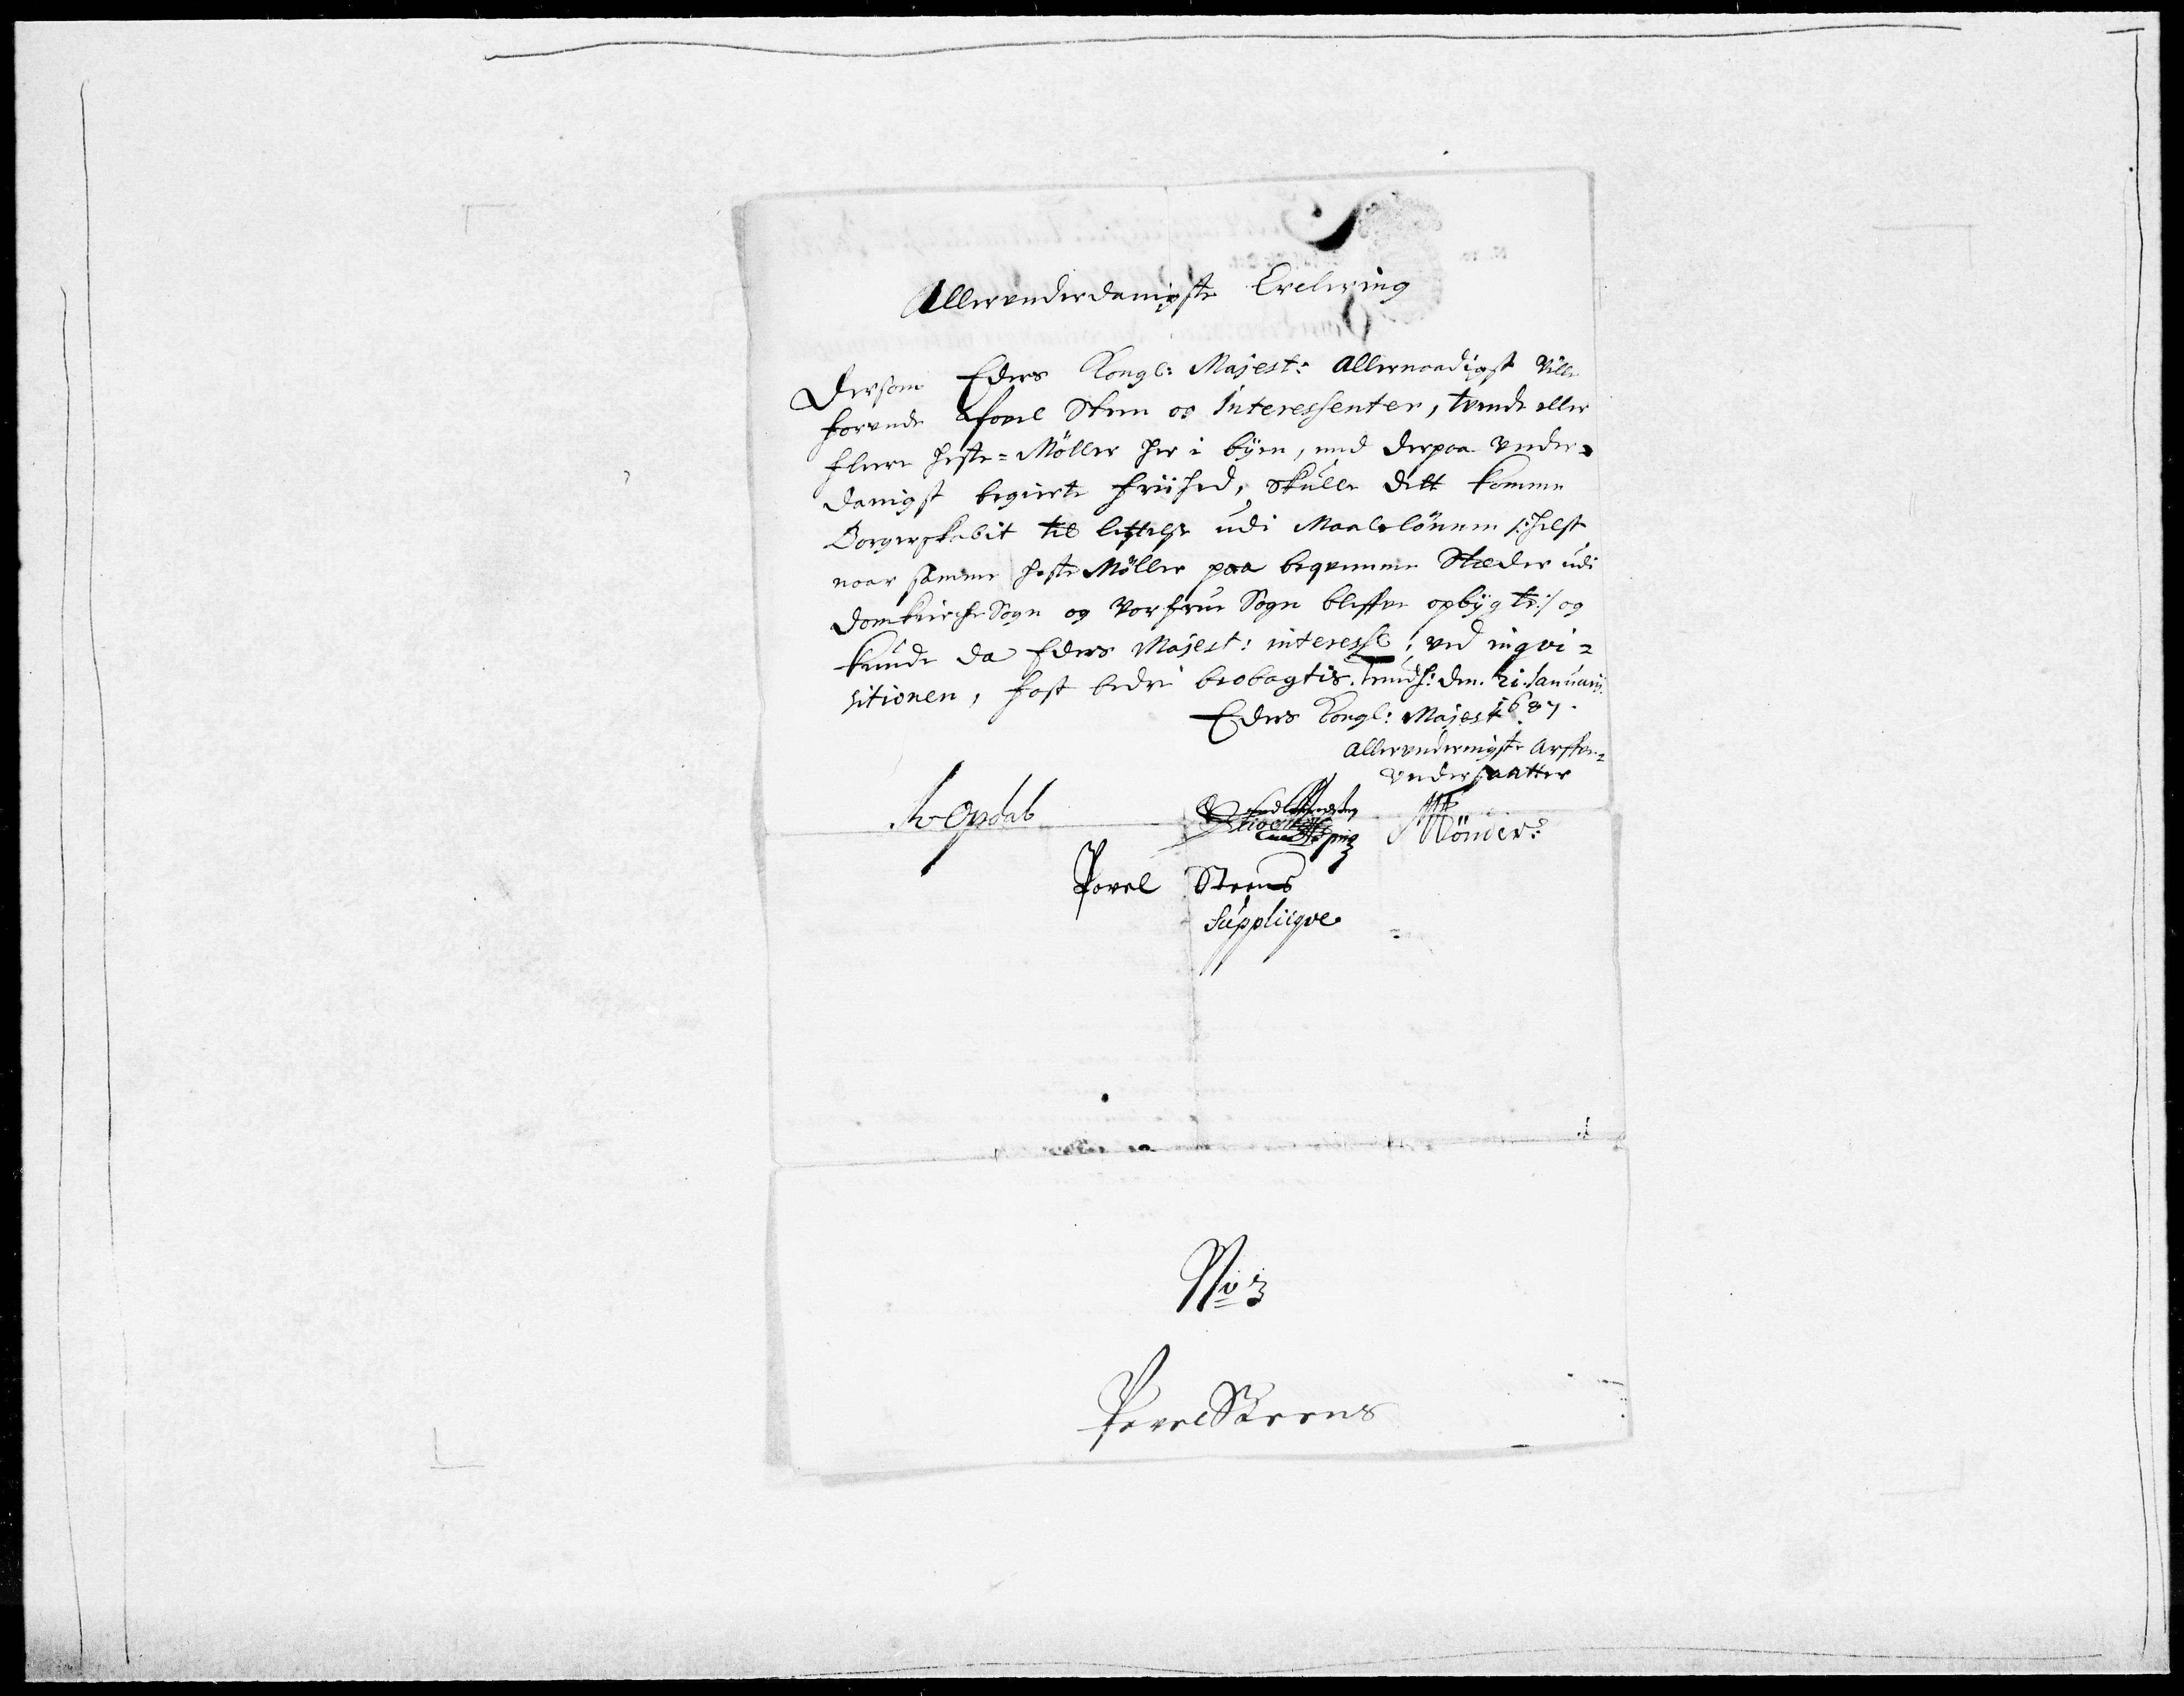 Allerunderdanigste Erclering
Dersom Eders Kongl: Majest: allernaadigst ville
forunde Povel Steen oc Interessenter, tvende eller
fleere heste=Möller her i byen, med derpaa under=
danigst begierte friihed, skulle dett komme
Borgerskabit til lettelse udi Maalelönnen /:helst
naar samme heste Möller paa beqvemme Stæder udi
Domkirche Sogn og Vorfrue Sogn bleffue opbygte:/ og
kunde da Eders Majest: interesse, ved inqvi=
sitionen, fast bedre beobagtis. Trundh: den 21 Januarij
1687.
Eders Kongl: Majest
allerundernigste Arffve=
undersaatter
Povel Steens
Suppliqve
No 3
Povel Steens